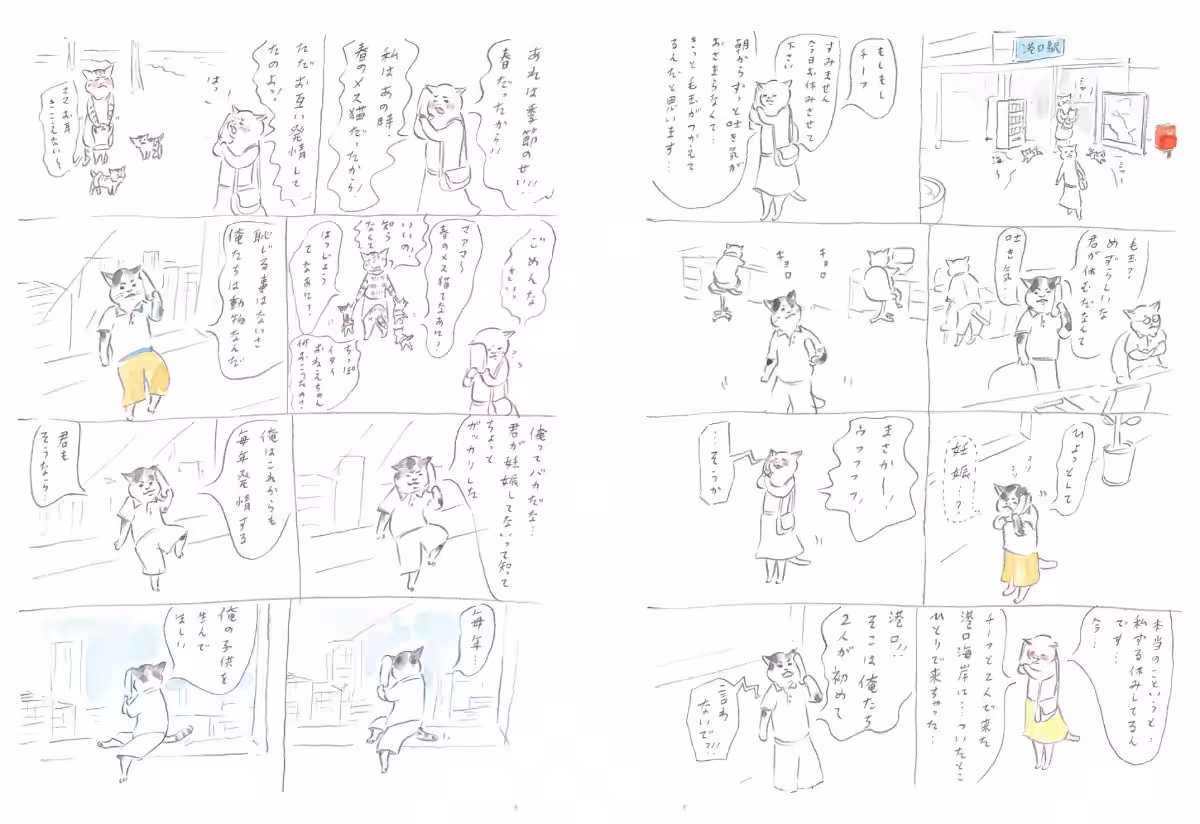 港口駅
もしもし
チーフ
すみません
今日お休みさせて
下さい
朝からずーっと吐き気が
おさまらなくて…
きっと毛玉がつかえて
るんだと思います…
毛玉?
めずらしいな
君が休むだなんて
吐き気
キョロ
キョロ
ひょっとして
妊娠…?
まさかー!
ウフフフフ!
…そっか
本当のこというと、
私ずる休みしてるん
です…
今…
チーフと2人で来た
港口海岸に…ついたとこ
ひとりで来ちゃった…
港口!!
そこは俺たち
2人が初めて
言わ
ないで?!!
あれは季節のせい!!
春だったから!!
私はあの時
春のメス猫だったから!
ただお互い発情して
たのよっ!
はっ
ママお耳
きこえない〜
ごめんな
さい?
マァマ〜
春のメス猫てなぁに?
いいの!
知ら
なくて
はつじょう
てなぁに?
ちっぽ
イタイ
おねえちゃん
何おこうなの?
恥じる事はないさ
俺たちは動物なんだ
俺ってバカだな…
君が妊娠してないって知って
ちょっと
ガッカリした
俺はこれからも
毎年発情する
君も
そうなら…
毎年…
俺の子供を
生んで
ほしい